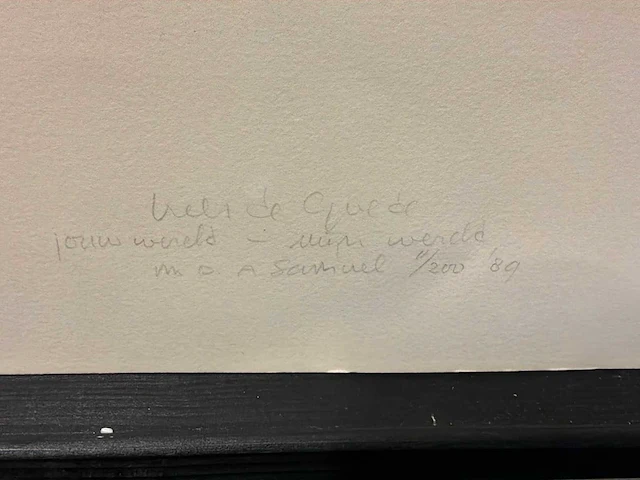 de Goede
jouw wereld - mijn wereld
m o A Samuel 11/200 '89